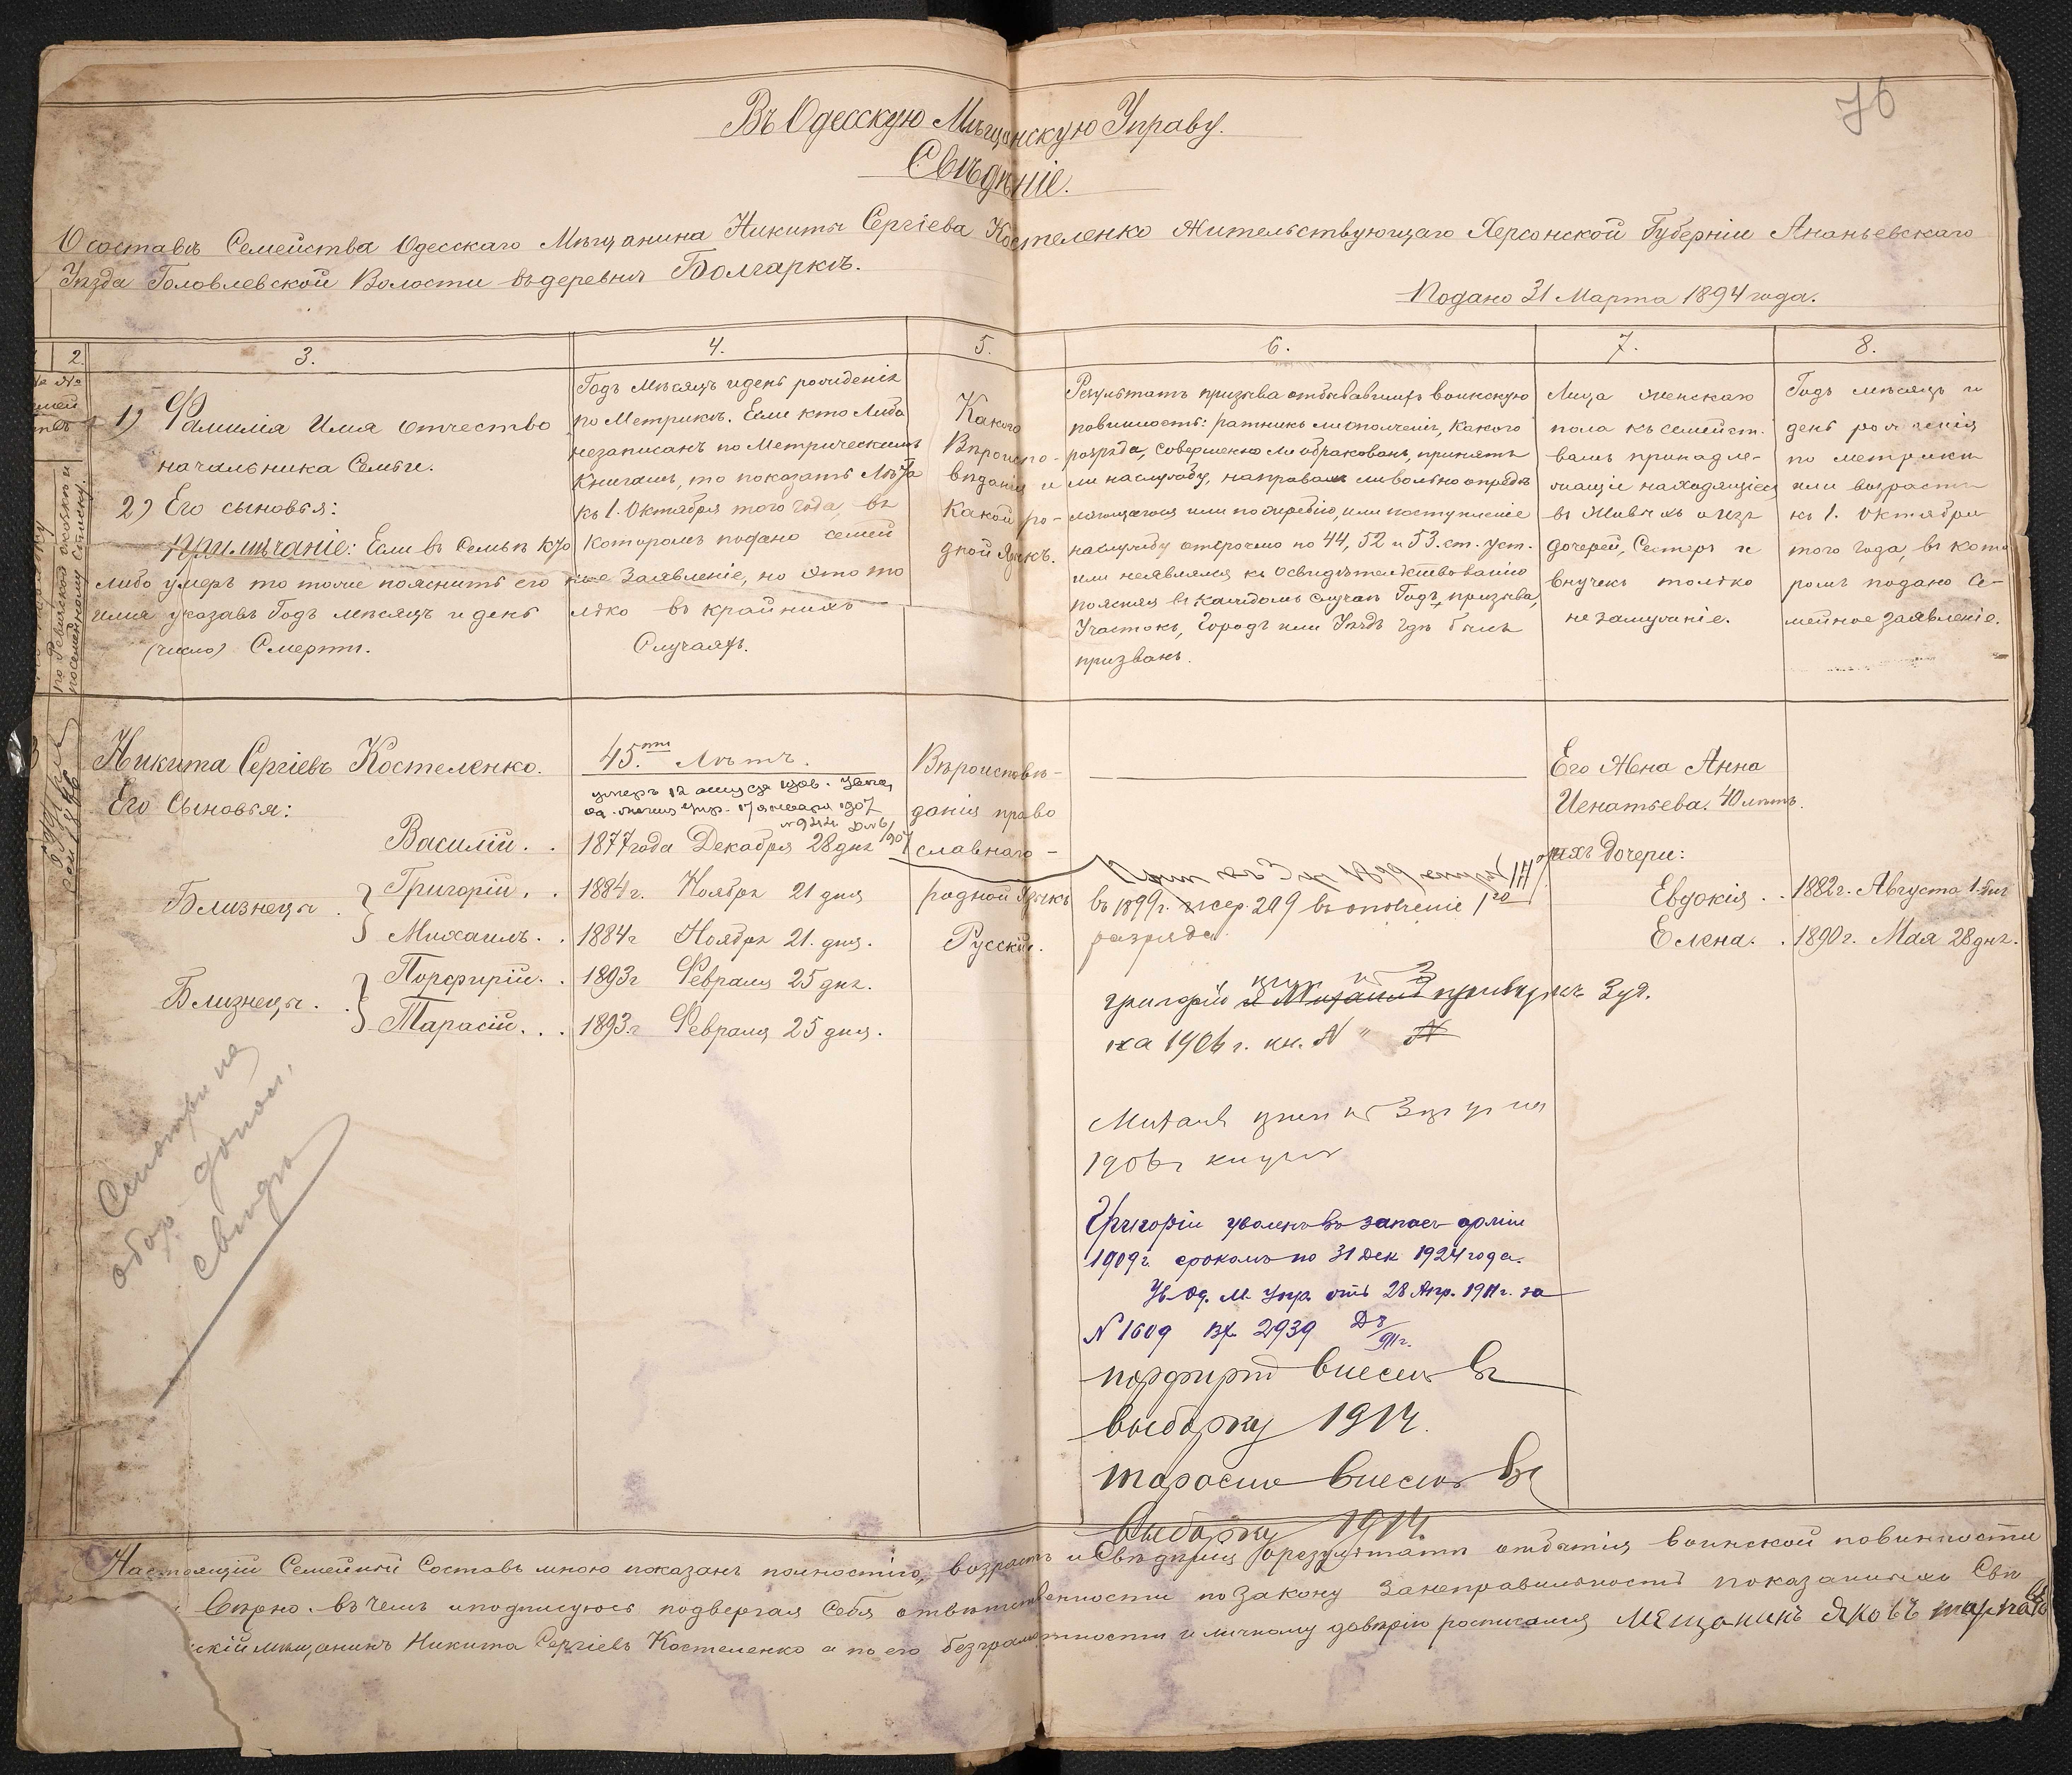 76
Въ Одесскую Мѣщанскую Управу.
Свѣдѣніе.
О составѣ Семейства Одесскаго Мѣщанина Никиты Сергіева Костеленко жительствующаго Херсонской Губерніи Ананьевскаго
Уѣзда Головлевской Волости въ деревнѣ Болгаркѣ.
Подано 31 Марта 1894 года.
2.
3.
4.
5.
6.
7.
8.
по Ревизской сказкѣ и
посемейному списку.
1) Фамилія Имя Отчество
начальника Семьи.
2) Его сыновья:
Примѣчаніе: Если въ Семьѣ кто
либо умеръ то тоже пояснить его
имя указавъ Годъ мѣсяцъ и день
(число) Смерти.
Годъ Мѣсяцъ и день рожденія
по Метрикѣ. Если кто либо
незаписанъ по Метрическимъ
книгамъ, то показать Лѣта
къ 1. Октября того года, въ
которомъ подано семей
ное Заявленіе, но это то
лько въ крайнихъ
Случаяхъ.
Какого
Вѣроиспо-
вѣданія и
какой ро-
дной языкъ.
Результатъ призыва отбывавшихъ воинскую
повинность: ратникъ ли ополченія, какого
разряда, совершенно ли обракованъ, принятъ
ли наслужбу, направахъ ли вольно опредѣ
ляющагося или по жребію, или поступленіе
наслужбу отсрочено по 44, 52 и 53. ст. уст.
или неявлялся къ освидѣтельствованію
поясняя въ каждомъ случаѣ Годъ призыва,
Участокъ, Городъ или Уѣздъ гдѣ былъ
призванъ.
Лица женскаго
пола къ семейст.
вамъ принадле-
жащіе находящіеся
въ живыхъ изъ
дочерей, Сестеръ и
внучекъ только
не замужніе.
Годъ мѣсяцъ и
день рожденія
по метрики
или возрастъ
къ 1. Октября
того года, въ кото
ромъ подано Се-
мейное заявленіе.
Никита Сергіевъ Костеленко.
45.ти Лѣтъ.
умеръ 12 августа
17 января 1907
№ 944
Вѣроисповѣ-
данія право
славнаго -
родной языкъ
Русскій.
Его Жена Анна
Игнатьева. 40 лѣтъ.
Его Сыновья:
Василій. . 1877 года Декабря 28 дня
Близнецы
Григорій. . 1884 г. Ноября 21 дня
Михаилъ. . 1884 г Ноября 21. дня.
Близнецы.
Порфирій. . 1893 г Февраля 25 дня.
Тарасій. . . 1893. г Февраля 25 дня.
ихъ дочери:
Евдокія . . 1882 г. Августа 1. дня
Елена. . 1890 г. Мая 28 дня.
въ 1899 г. жер. 219 въ ополченіе 1го
разряда.
Григорій и Михаилъ 3 уч.
на 1906 г. кн. N " N
Михаил 3
1906 г
Григорій уволенъ въ запасъ арміи
1909 г. срокомъ по 31 Дек 1924 года.
Ув. Од. М. Упр. отъ 28 Апр. 1911 г. за
N 1609 Вх. 2939
порфирій внесенъ въ
выборку 1914.
тарасій внесенъ въ
выборку 1914.
Смотри на
обор. допол.
свѣдѣн
Настоящій Семейный Составъ мною показанъ полностію, возрастъ и Свѣдѣнія о результатѣ отбытія воинской повинности
Вѣрно. въ чемъ и подписуюсь подвергая Себя отвѣтственности по Закону за неправильность показанія
скій мѣщанинъ Никита Сергіевъ Костеленко а по его безграмотности и личному довѣрію росписался Мещанинъ Яковъ